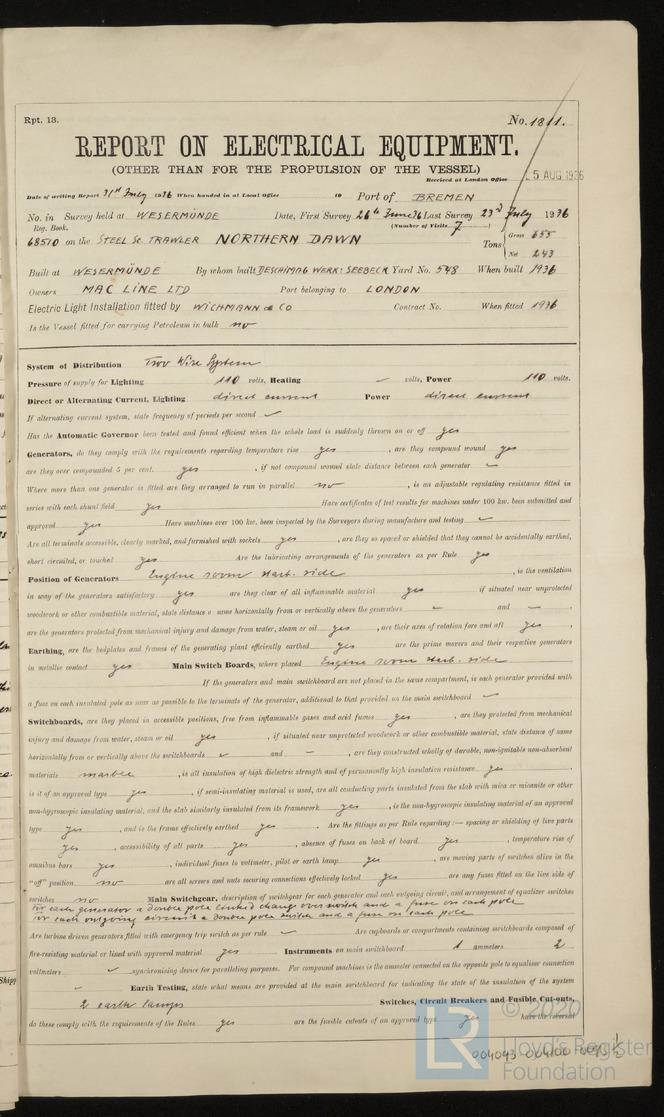 Rpt. 13.
No. 1811.
REPORT ON ELECTRICAL EQUIPMENT.
(OTHER THAN FOR THE PROPULSION OF THE VESSEL)
Received at London Office 5 AUG 1936
Date of writing Report 31st July 1936 When handed in at Local Office 19 Port of BREMEN
No. in Survey held at WESERMÜNDE Date, First Survey 26th June 36 Last Survey 23rd July 1936
Reg. Book. (Number of Visits 7)
68570 on the STEEL Sc. TRAWLER NORTHERN DAWN Tons Gross 655
Net 243
Built at WESERMÜNDE By whom built DESCHIMAG WERK: SEEBECK Yard No. 548 When built 1936
Owners MAC LINE LTD Port belonging to LONDON
Electric Light Installation fitted by WICHMANN & CO Contract No. When fitted 1936
Is the Vessel fitted for carrying Petroleum in bulk no
System of Distribution Two Wire System
Pressure of supply for Lighting 110 volts, Heating volts, Power 110 volts.
Direct or Alternating Current, Lighting direct current Power direct current
If alternating current system, state frequency of periods per second
Has the Automatic Governor been tested and found efficient when the whole load is suddenly thrown on or off yes
Generators, do they comply with the requirements regarding temperature rise yes , are they compound wound yes
are they over compounded 5 per cent. yes , if not compound wound state distance between each generator
Where more than one generator is fitted are they arranged to run in parallel no , is an adjustable regulating resistance fitted in
series with each shunt field yes Have certificates of test results for machines under 100 kw. been submitted and
approved yes Have machines over 100 kw. been inspected by the Surveyors during manufacture and testing
Are all terminals accessible, clearly marked, and furnished with sockets yes , are they so spaced or shielded that they cannot be accidentally earthed,
short circuited, or touched yes Are the lubricating arrangements of the generators as per Rule yes
Position of Generators Engine room starb. side , is the ventilation
in way of the generators satisfactory yes are they clear of all inflammable material yes if situated near unprotected
woodwork or other combustible material, state distance of same horizontally from or vertically above the generators – and – ,
are the generators protected from mechanical injury and damage from water, steam or oil yes , are their axes of rotation fore and aft yes ,
Earthing, are the bedplates and frames of the generating plant efficiently earthed yes are the prime movers and their respective generators
in metallic contact yes Main Switch Boards, where placed Engine room starb. side
If the generators and main switchboard are not placed in the same compartment, is each generator provided with
a fuse on each insulated pole as near as possible to the terminals of the generator, additional to that provided on the main switchboard
Switchboards, are they placed in accessible positions, free from inflammable gases and acid fumes yes , are they protected from mechanical
injury and damage from water, steam or oil yes , if situated near unprotected woodwork or other combustible material, state distance of same
horizontally from or vertically above the switchboards and – , are they constructed wholly of durable, non-ignitable non-absorbent
materials marble , is all insulation of high dielectric strength and of permanently high insulation resistance yes ,
is it of an approved type yes , if semi-insulating material is used, are all conducting parts insulated from the slab with mica or micanite or other
non-hygroscopic insulating material, and the slab similarly insulated from its framework yes , is the non-hygroscopic insulating material of an approved
type yes , and is the frame effectively earthed yes . Are the fittings as per Rule regarding :— spacing or shielding of live parts
yes , accessibility of all parts yes , absence of fuses on back of board yes , temperature rise of
omnibus bars yes , individual fuses to voltmeter, pilot or earth lamp yes , are moving parts of switches alive in the
"off" position no are all screws and nuts securing connections effectively locked yes are any fuses fitted on the live side of
switches no Main Switchgear, description of switchgear for each generator and each outgoing circuit, and arrangement of equalizer switches
for each generator a double pole linked change over switch and a fuse on each pole
for each outgoing circuit a double pole switch and a fuse on each pole
Are turbine driven generators fitted with emergency trip switch as per rule Are cupboards or compartments containing switchboards composed of
fire-resisting material or lined with approved material yes Instruments on main switchboard 1 ammeters 2
voltmeters synchronising device for paralleling purposes. For compound machines is the ammeter connected on the opposite pole to equaliser connection
Earth Testing, state what means are provided at the main switchboard for indicating the state of the insulation of the system
2 earth lamps Switches, Circuit Breakers and Fusible Cut-outs,
do these comply with the requirements of the Rules yes are the fusible cutouts of an approved type yes have the reversed
© 2020
LR Lloyd's Register
Foundation